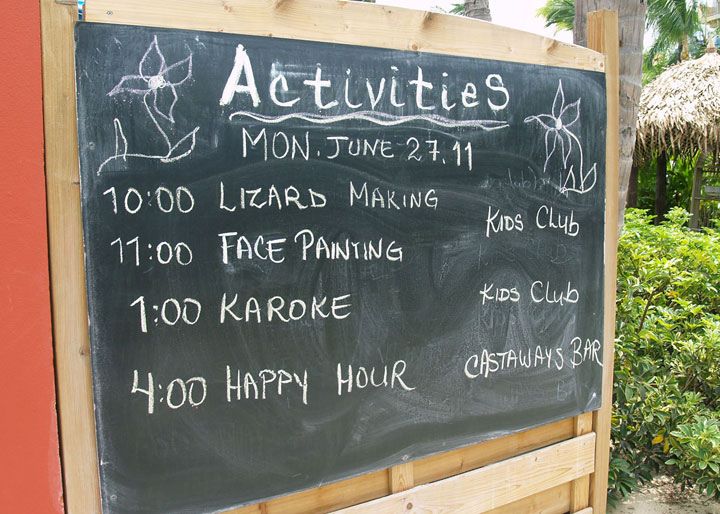 Activities
MON. JUNE 27.11
10:00 LIZARD MAKING
KIDS CLUB
11:00 FACE PAINTING
1:00 KAROKE
KIDS CLUB
4:00 HAPPY HOUR
CASTAWAYS BAR